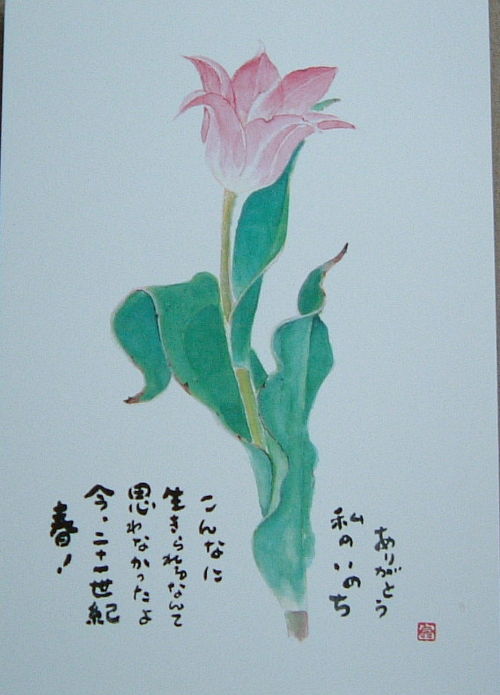 ありがとう
私のいのち
こんなに
生きられるなんて
思わなかったよ
今、二十一世紀
春!